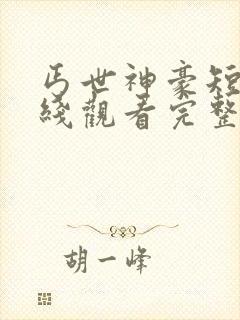 丐世神豪短
綫觀看完整
胡一峰